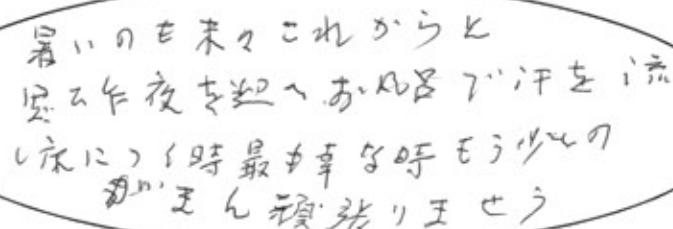 暑いのも未々これからと
思云昨夜を迎へお風呂で汗を流
し床につく時最も幸な時もう少しの
がまん頑張りませう